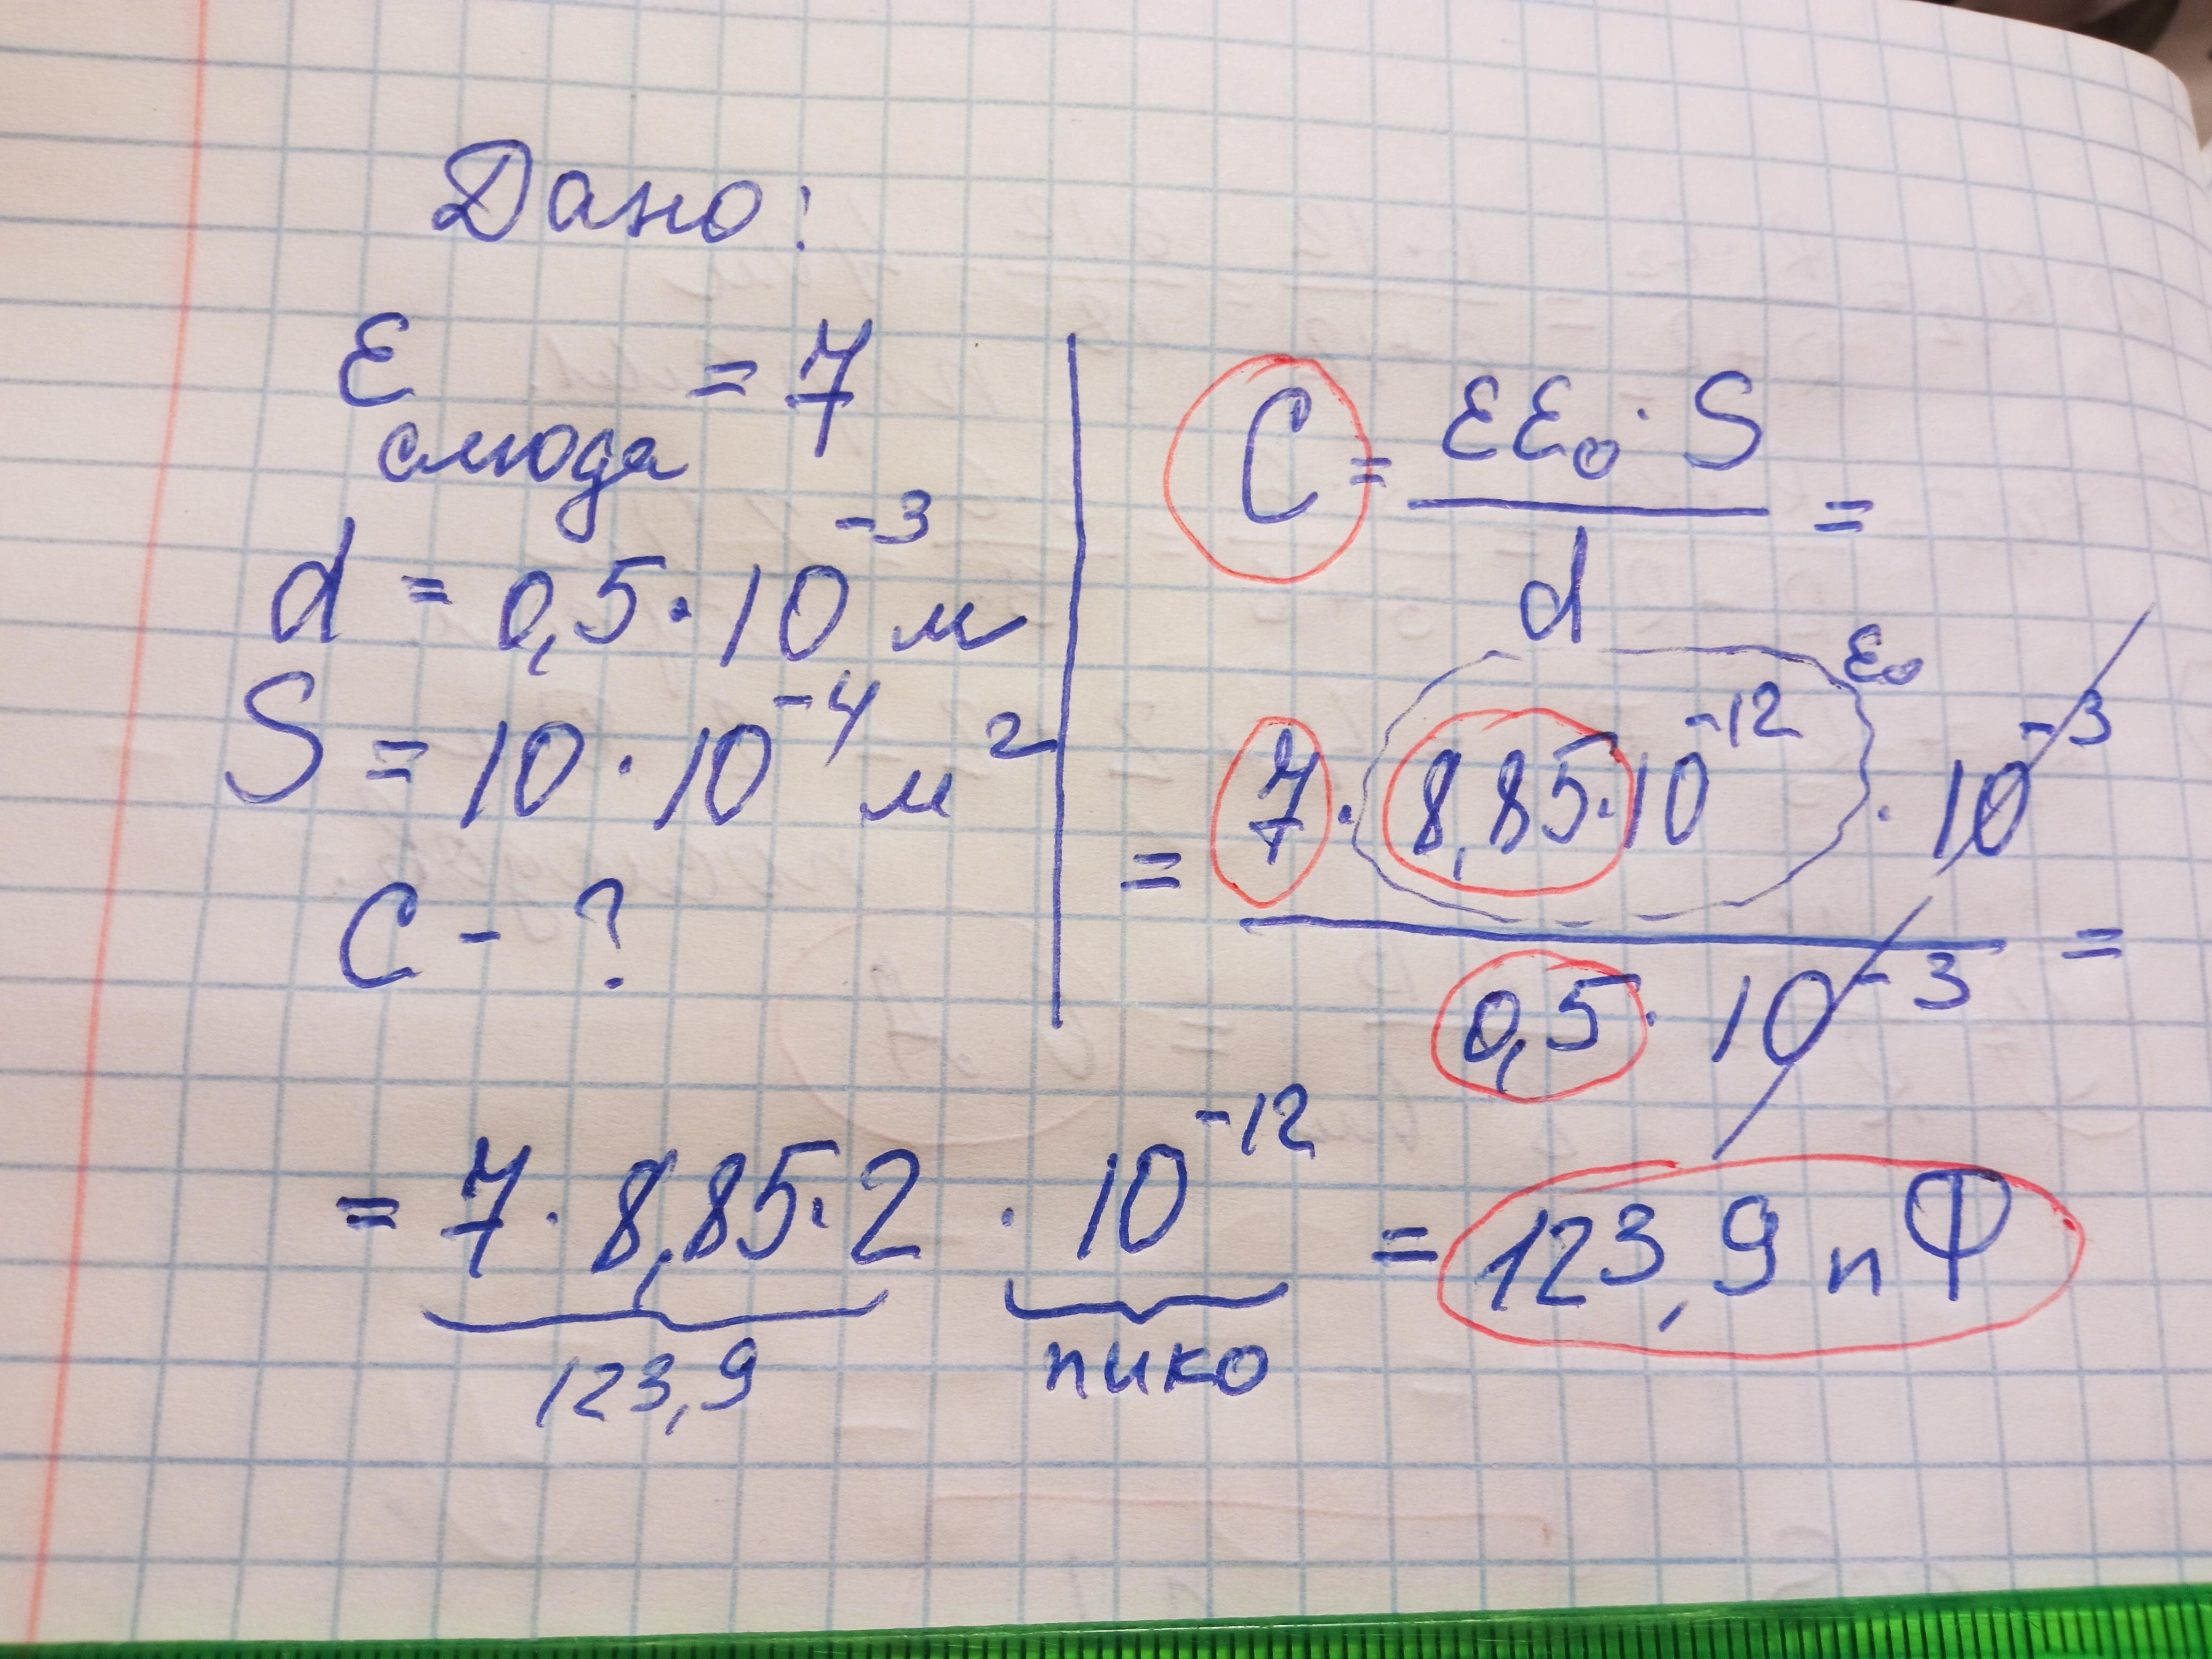 Дано:
ε слюда = 7
d = 0,5·10⁻³ м
S = 10·10⁻⁴ м²
C - ?
C = εε₀·S / d =
= 7·8,85·10⁻¹²·10⁻³ / 0,5·10⁻³ =
ε₀
= 7·8,85·2·10⁻¹² = 123,9 пФ
123,9 пико